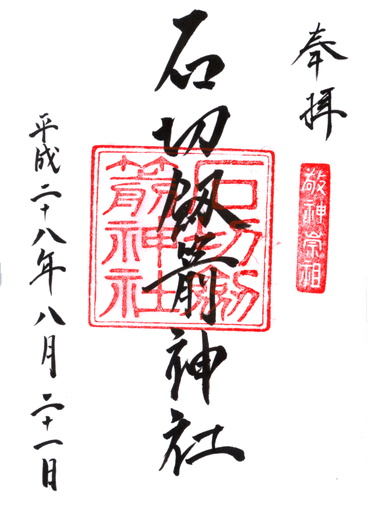 奉拝
敬神崇祖
石切劔箭神社
石切劔箭神社
平成二十八年八月二十一日